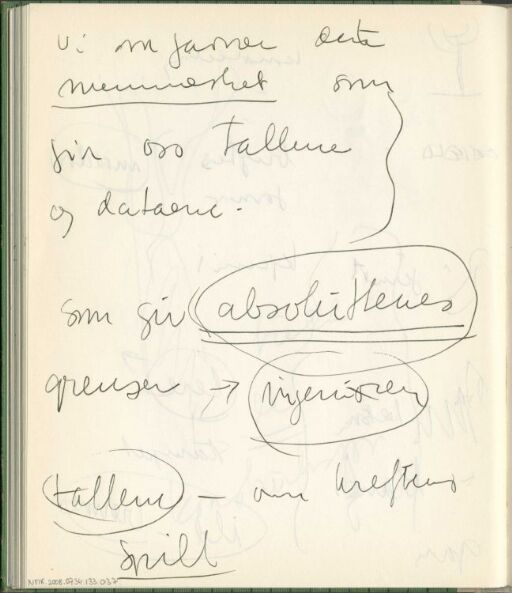 Vi må favne dette
mennesket som
gir oss tallene
og dataene.
som gir absoluttenes
grenser → ingeniøren
tallene — om kreftenes
spill
NMK.2008.0734.133.037